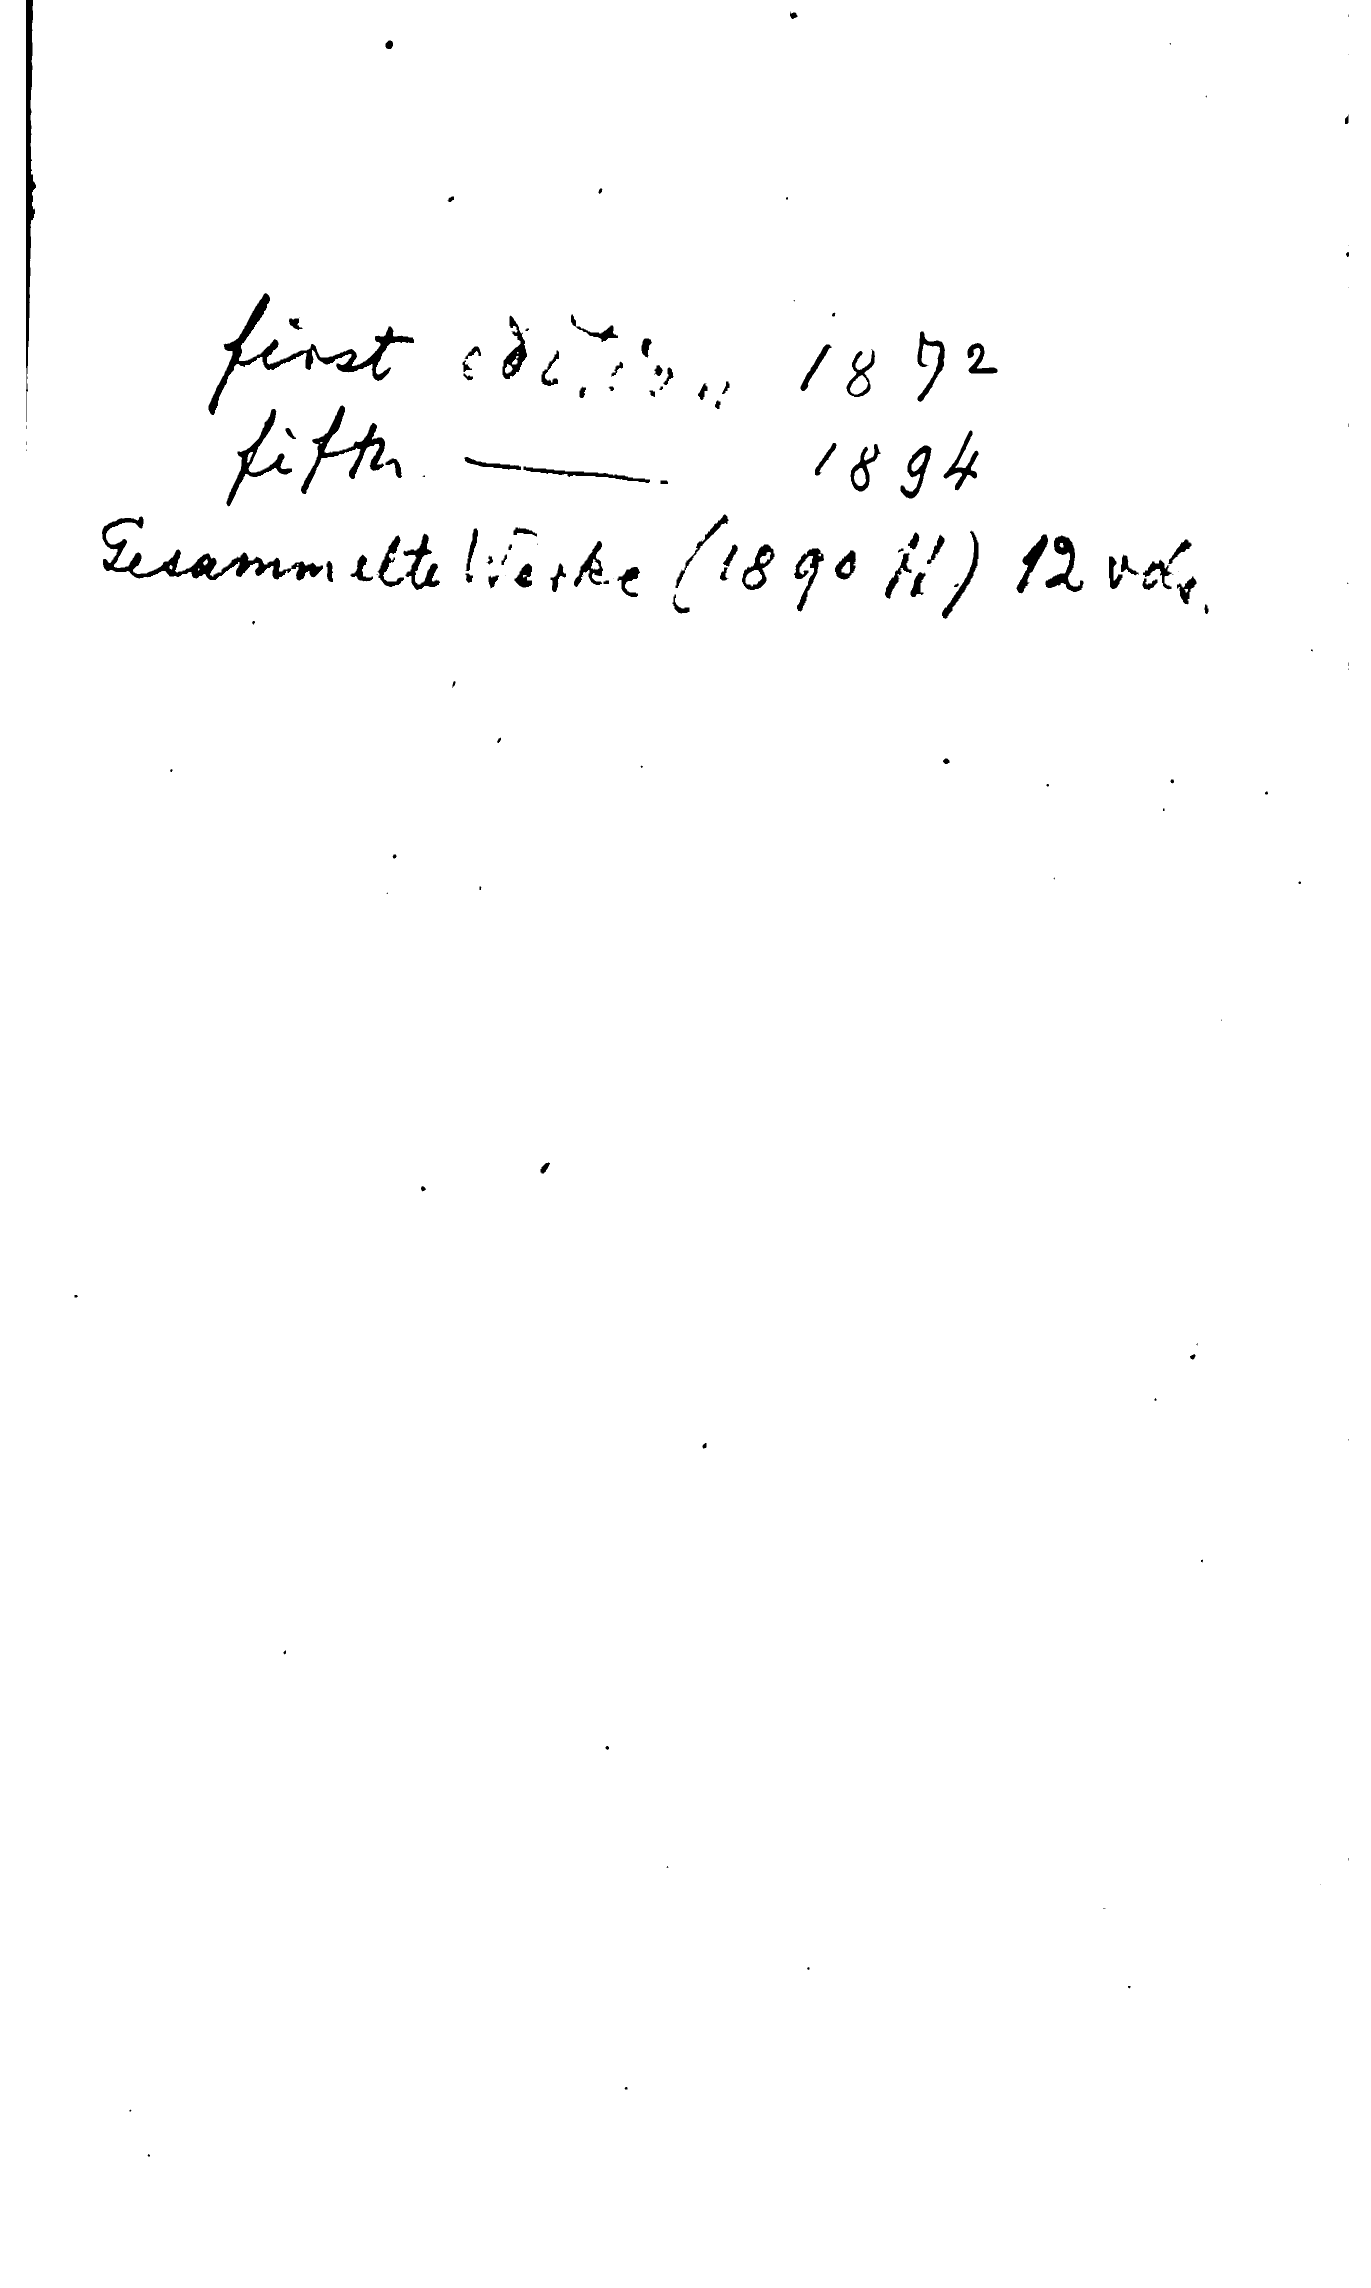 first edition 1872
fifth —— 1894
Gesammelte Werke (1890 ff) 12 vols.